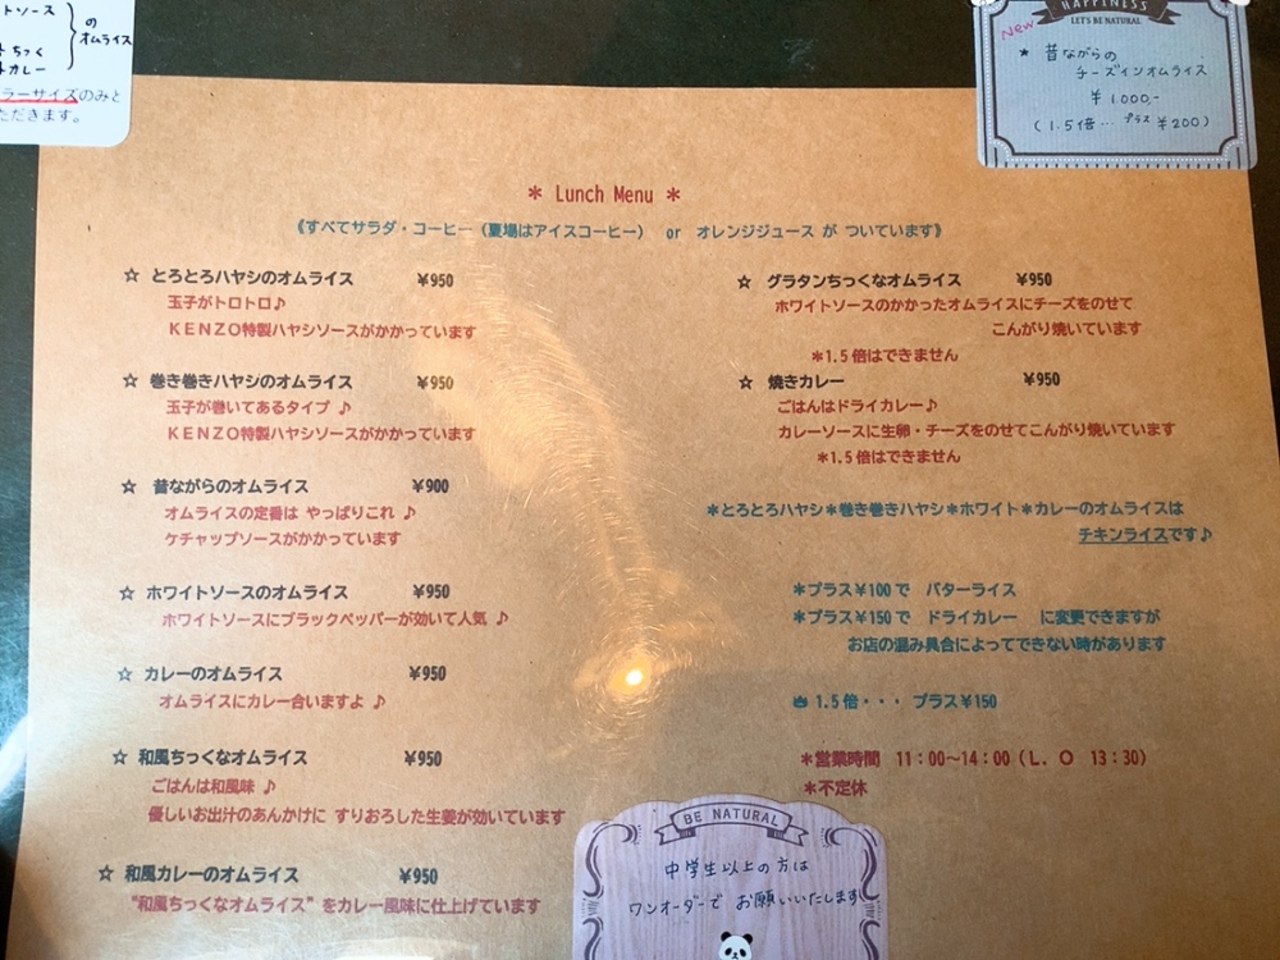 トソース
の
オムライス
ちっく
カレー
ラーサイズのみと
ただきます。
HAPPINESS
LET'S BE NATURAL
New
★ 昔ながらの
チーズインオムライス
¥1.000,-
(1.5倍… プラス ¥200)
＊ Lunch Menu ＊
《すべてサラダ・コーヒー（夏場はアイスコーヒー） or オレンジジュース が ついています》
☆ とろとろハヤシのオムライス ¥950
玉子がトロトロ♪
ＫＥＮＺＯ特製ハヤシソースがかかっています
☆ 巻き巻きハヤシのオムライス ¥950
玉子が巻いてあるタイプ ♪
ＫＥＮＺＯ特製ハヤシソースがかかっています
☆ 昔ながらのオムライス ¥900
オムライスの定番は やっぱりこれ ♪
ケチャップソースがかかっています
☆ ホワイトソースのオムライス ¥950
ホワイトソースにブラックペッパーが効いて人気 ♪
☆ カレーのオムライス ¥950
オムライスにカレー合いますよ ♪
☆ 和風ちっくなオムライス ¥950
ごはんは和風味 ♪
優しいお出汁のあんかけに すりおろした生姜が効いています
☆ 和風カレーのオムライス ¥950
“和風ちっくなオムライス”をカレー風味に仕上げています
☆ グラタンちっくなオムライス ¥950
ホワイトソースのかかったオムライスにチーズをのせて
こんがり焼いています
＊1.5倍はできません
☆ 焼きカレー ¥950
ごはんはドライカレー♪
カレーソースに生卵・チーズをのせてこんがり焼いています
＊1.5倍はできません
＊とろとろハヤシ＊巻き巻きハヤシ＊ホワイト＊カレーのオムライスは
チキンライスです♪
＊プラス¥100で バターライス
＊プラス¥150で ドライカレー に変更できますが
お店の混み具合によってできない時があります
1.5倍・・・ プラス¥150
＊営業時間 11：00～14：00（Ｌ．Ｏ 13：30）
＊不定休
BE NATURAL
中学生以上の方は
ワンオーダーで お願いいたします